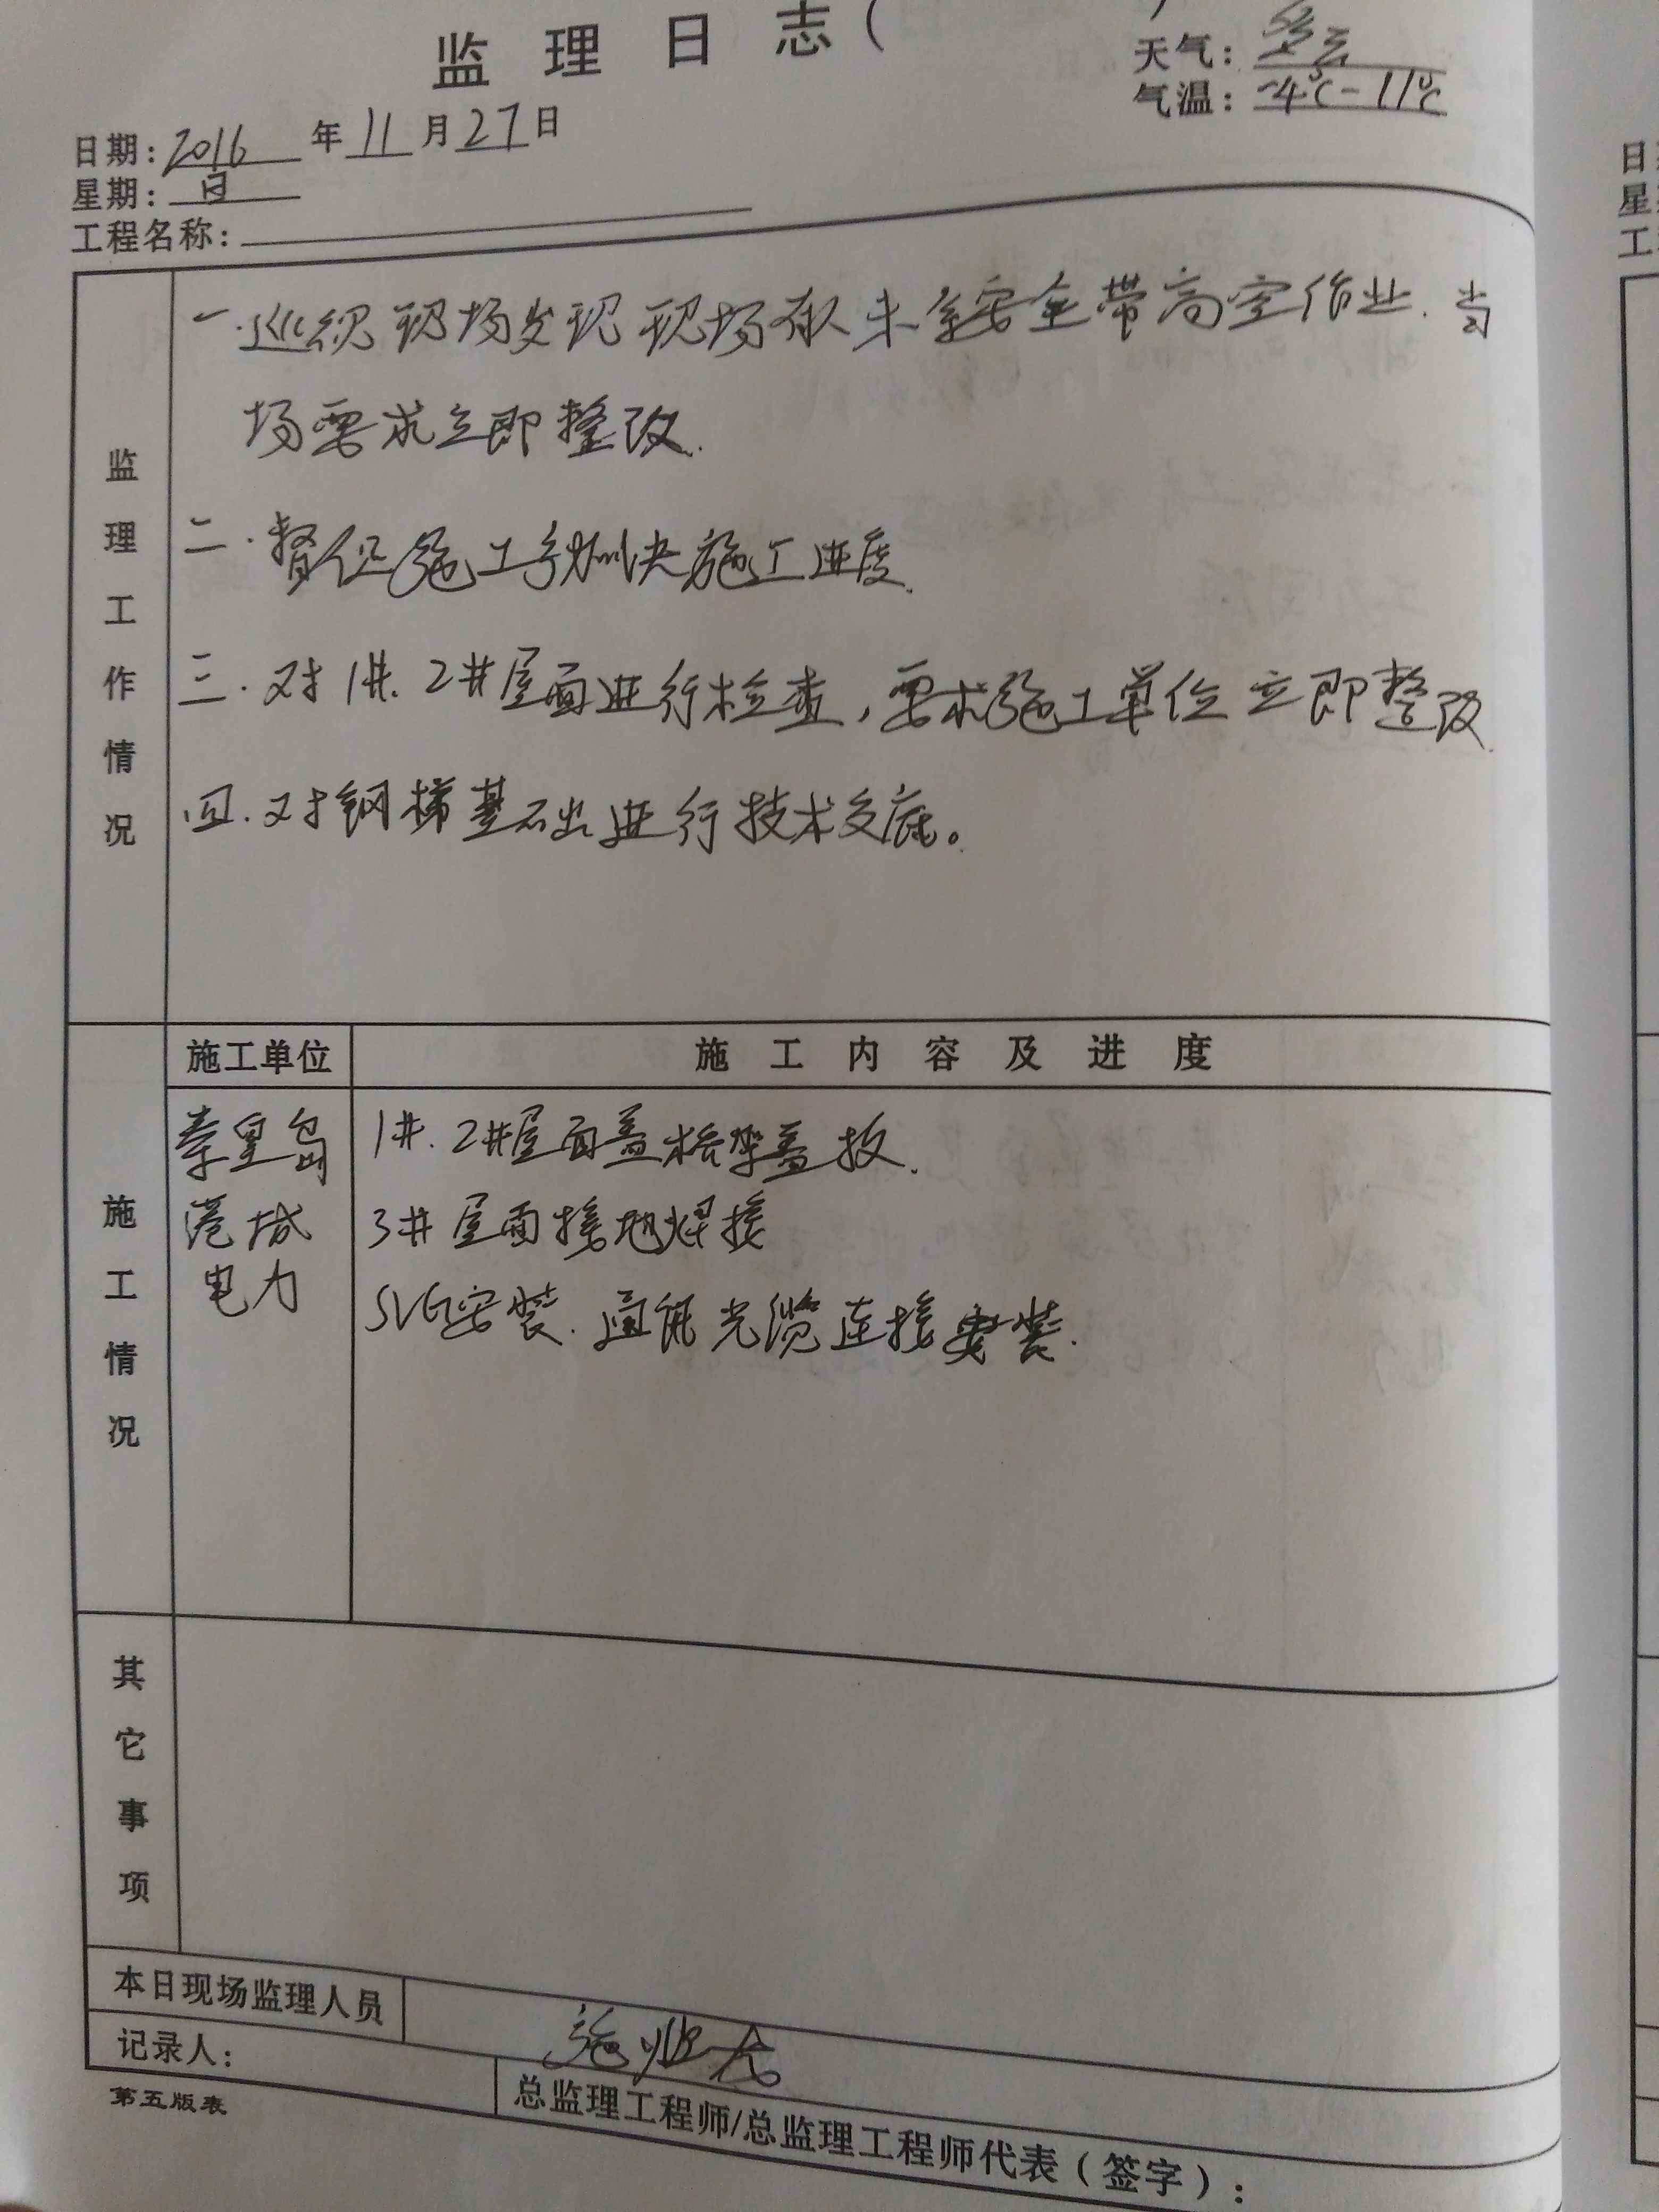 监理日志(
天气：多云
气温：-4℃-11℃
日期：2016年11月27日
星期：日
工程名称：
监理工作情况
一.巡视现场发现现场有人未系安全带高空作业.当
场要求立即整改.
二.督促施工方加快施工进度.
三.对1#.2#屋面进行检查,要求施工单位立即整改.
四.对钢梯基础进行技术交底。
施工单位 施工内容及进度
施工情况
秦皇岛
港城
电力
1#.2#屋面盖桥架盖板.
3#屋面接地焊接
SVG安装.通讯光缆连接安装.
其它事项
本日现场监理人员
记录人：
总监理工程师/总监理工程师代表（签字）：
第五版表
日
星
工